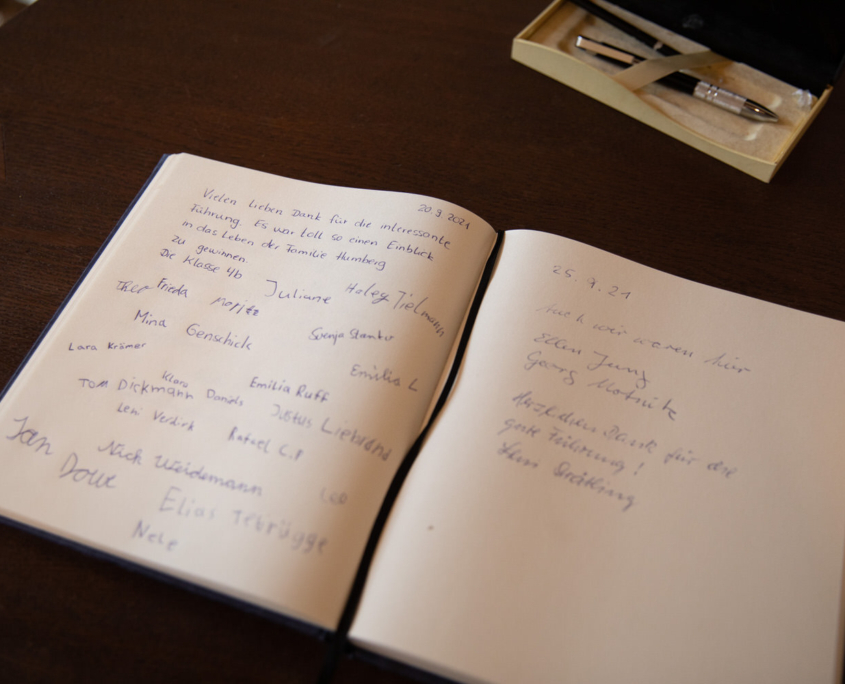 20.9.2021
Vielen lieben Dank für die interessante
Führung. Es war toll so einen Einblick
in das Leben der Familie Humberg
zu gewinnen.
Die Klasse 4b
Frieda Moritz Juliane Haley Tielmann
Mina Genschick Svenja
Lara Krämer
Emilia L
Klara
Tom Dickmann Daniels Emilia Ruff
Justus Liebrand
Leni Rafael C.P
Jan
Nick Weidemann Leo
Elias Tebrügge
Nele
25.9.21
Auch wir waren hier
Ellen Jung
Georg
Herzlichen Dank für die
gute Führung!